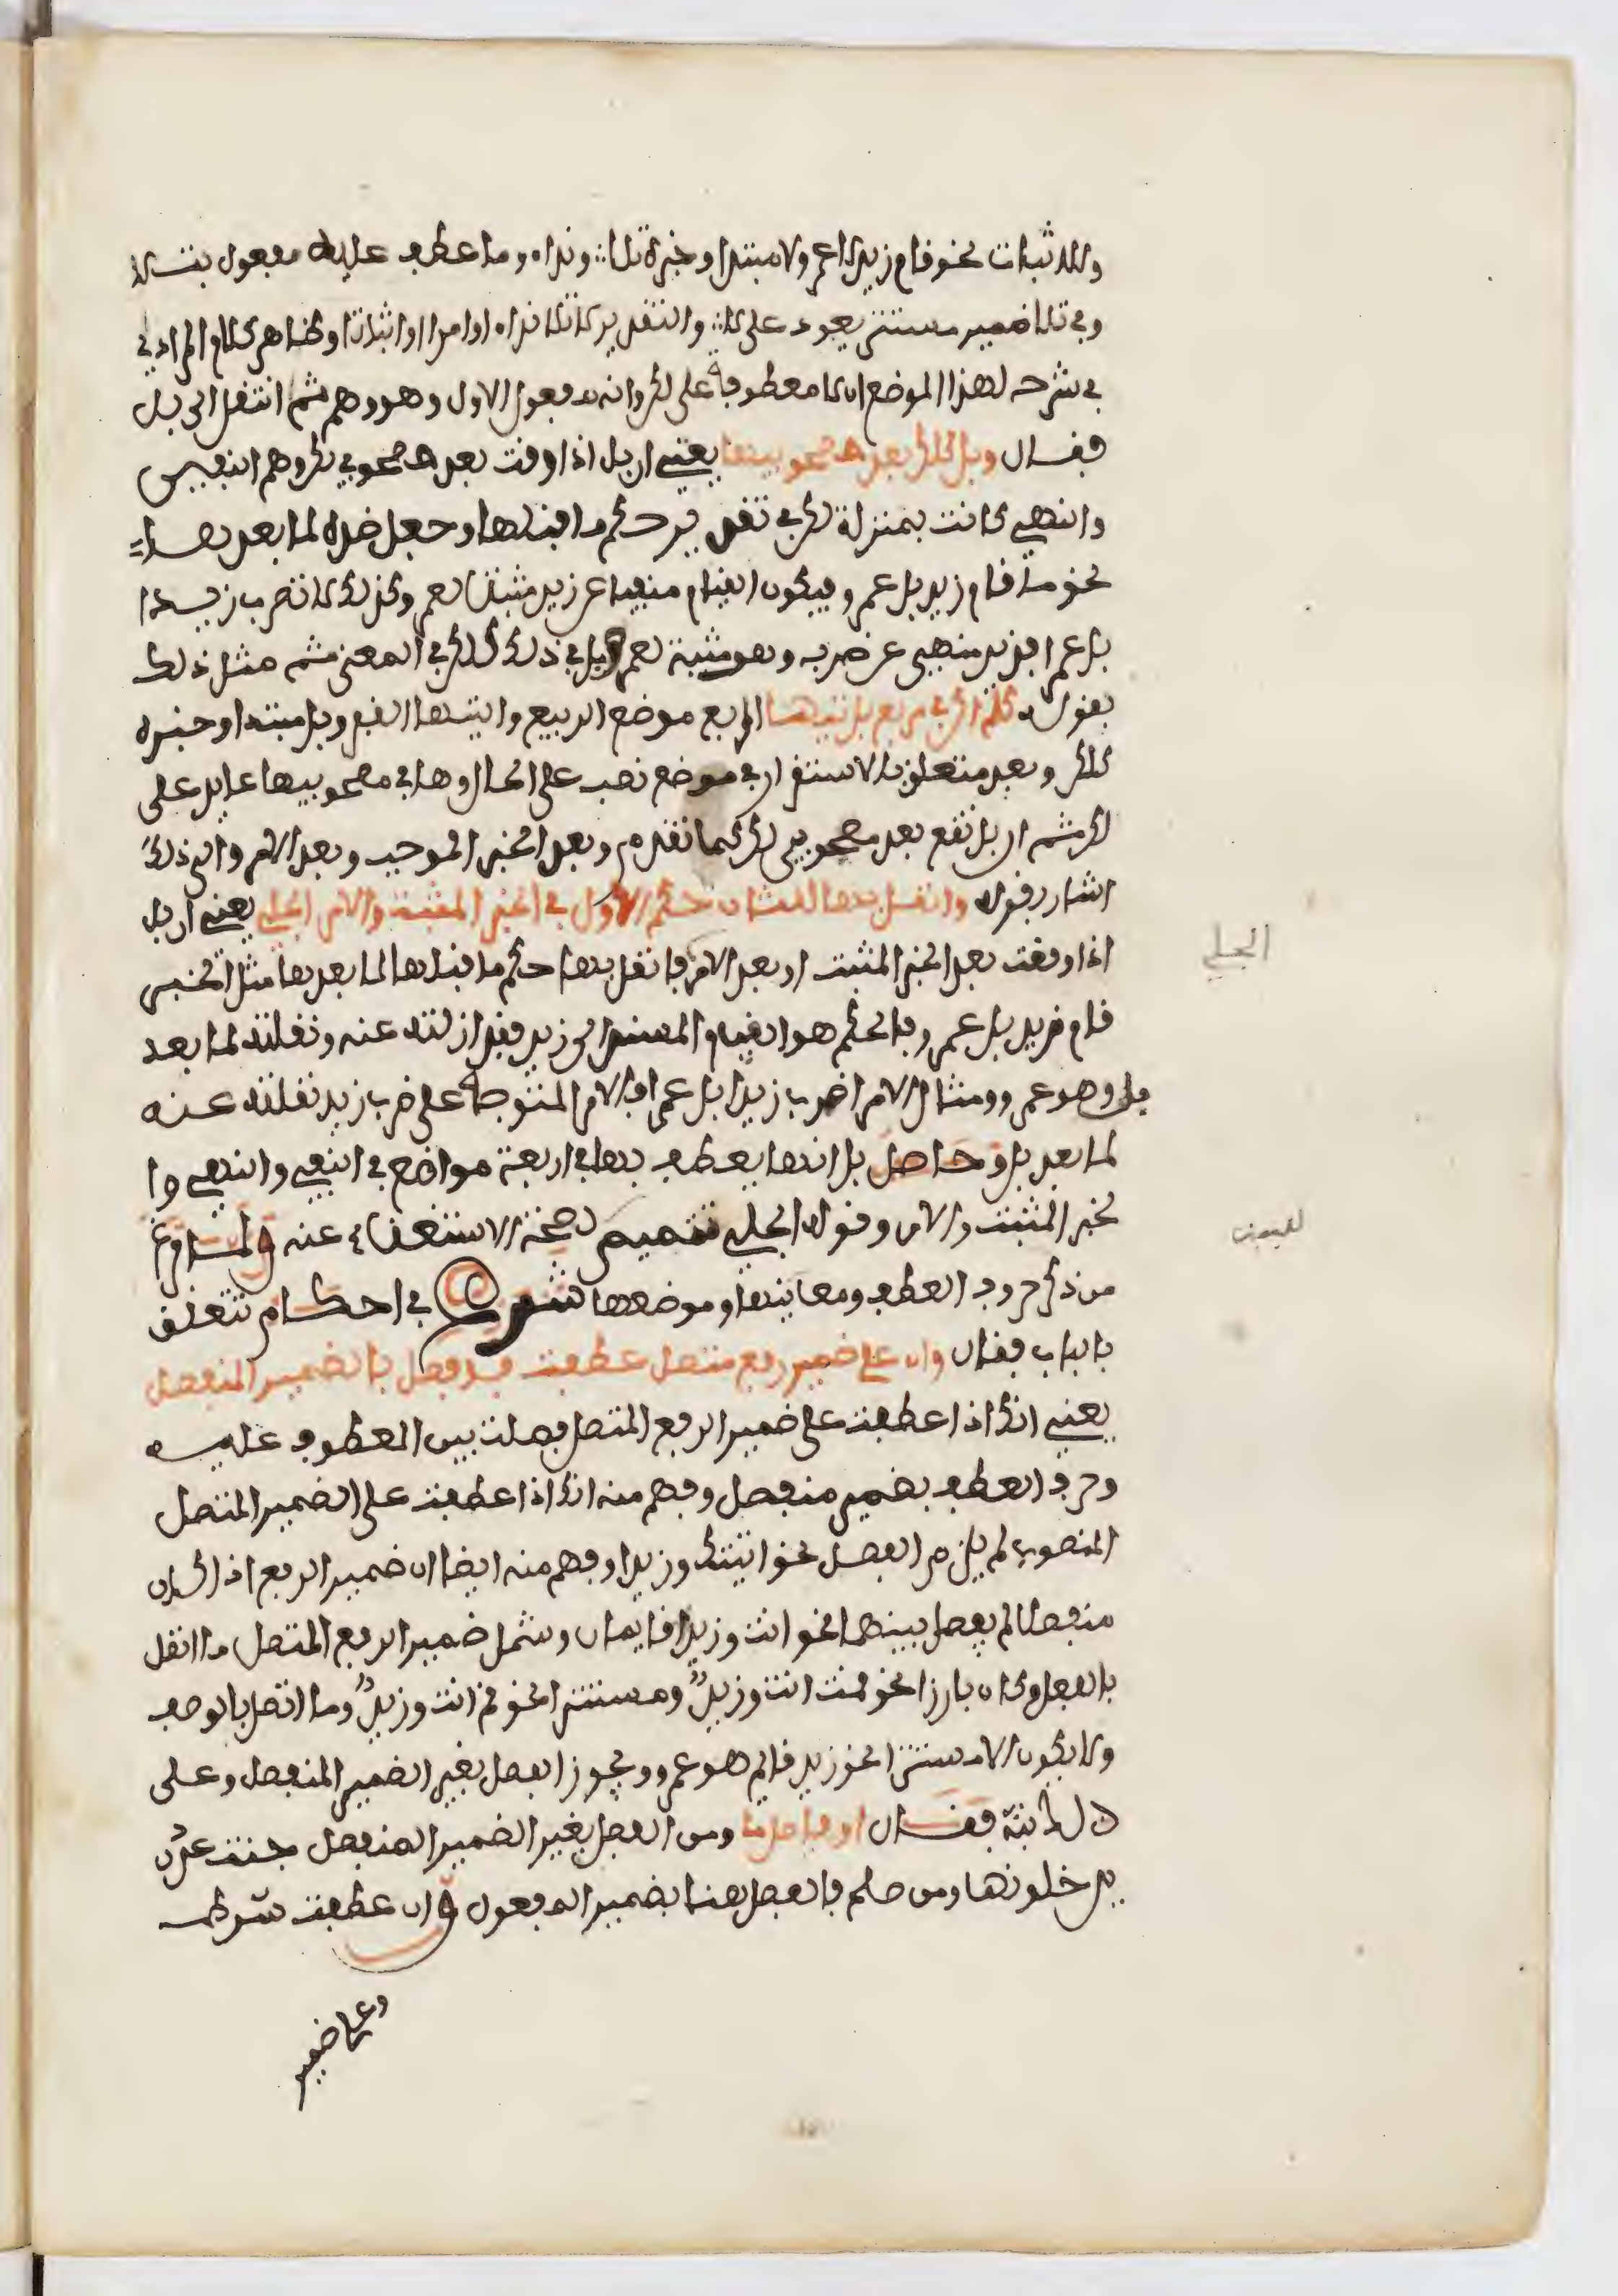 وللاثبات نحو قام زيد لا عمرو ولا مبتدا وخبره تلا ونداء وما عطف عليه مفعول بتلا
وفي تلا ضمير مستتر يعود على لا والتقدير لا تلا نداء او امرا او اثباتا وظاهر كلام المرادي
في شرحه لهذا الموضع ان لا معطوفة على لكن وانه مفعول الاول وهو وهم ثم انتقل الى بل
فقال وبل كلكن بعد مصحوبيها يعني ان بل اذا وقعت بعد مصحوبي لكن وهما النفي
والنهي كانت بمنزلة لكن في تقرير حكم ما قبلها وجعل ضده لما بعدها
نحو ما قام زيد بل عمرو فيكون القيام منفيا عن زيد مثبتا لعمرو وكذلك لا تضرب زيدا
بل عمرا فزيد منهي عن ضربه وهو مثبت لعمرو فبل في ذلك كلكن في المعنى ثم مثل ذلك
بقوله كلم اكن في مربع بل تيهـا المربع موضع الربيع والتيها القفر وبل مبتدا وخبره
كلكن وبعد متعلق بالاستقرار في موضع نصب على الحال وها في مصحوبيها عايد على
لكن ثم ان بل تقع بعد مصحوبي لكن كما تقدم وبعد الخبر الموجب وبعد الامر والى ذلك
اشار بقوله وانقل بها للثان حكم الاول في الخبر المثبت والامر الجلي يعني ان بل
اذا وقعت بعد الخبر المثبت او بعد الامر فانقل بها حكم ما قبلها لما بعدها مثل الخبر
قام زيد بل عمرو فالحكم هو القيام المسند الى زيد فقد ازلته عنه ونقلته لما بعد
بل وهو عمرو ومثال الامر اضرب زيدا بل عمرا فالامر المتوجه على ضرب زيد نقلته عنه
لما بعد بل وحاصل بل انها يعطف بها في اربعة مواضع في النفي والنهي وا
لخبر المثبت والامر وقوله الجلي تتميم لصحة الاستغناء عنه ولما فرغ
من ذكر حروف العطف ومعانيها وموضعها شرع في احكام تتعلق
بالباب فقال وان على ضمير رفع متصل عطفت فافصل بالضمير المنفصل
يعني انك اذا عطفت على ضمير الرفع المتصل فصلت بين المعطوف عليه
وحرف العطف بضمير منفصل وفهم منه انك اذا عطفت على الضمير المتصل
المنصوب لم يلزم الفصل نحو اتيتك وزيدا وفهم منه ايضا ان ضمير الرفع اذا كان
منفصلا لم يفصل بينهما نحو انت وزيد قايمان وشمل ضمير الرفع المتصل ما اتصل
بالفعل وكان بارزا نحو قمت انت وزيد ومستترا نحو قم انت وزيد وما اتصل بالوصف
ولا يكون الا مستترا نحو زيد قايم هو وعمرو ويجوز الفصل بغير الضمير المنفصل وعلى
ذلك نبه فقال او فاصل ما ومن الفصل بغير الضمير المنفصل جنت عدن
يدخلونها ومن صلح فالفصل هنا بضمير المفعول وان عطفت شرط
وعلى ضمير
الجلي